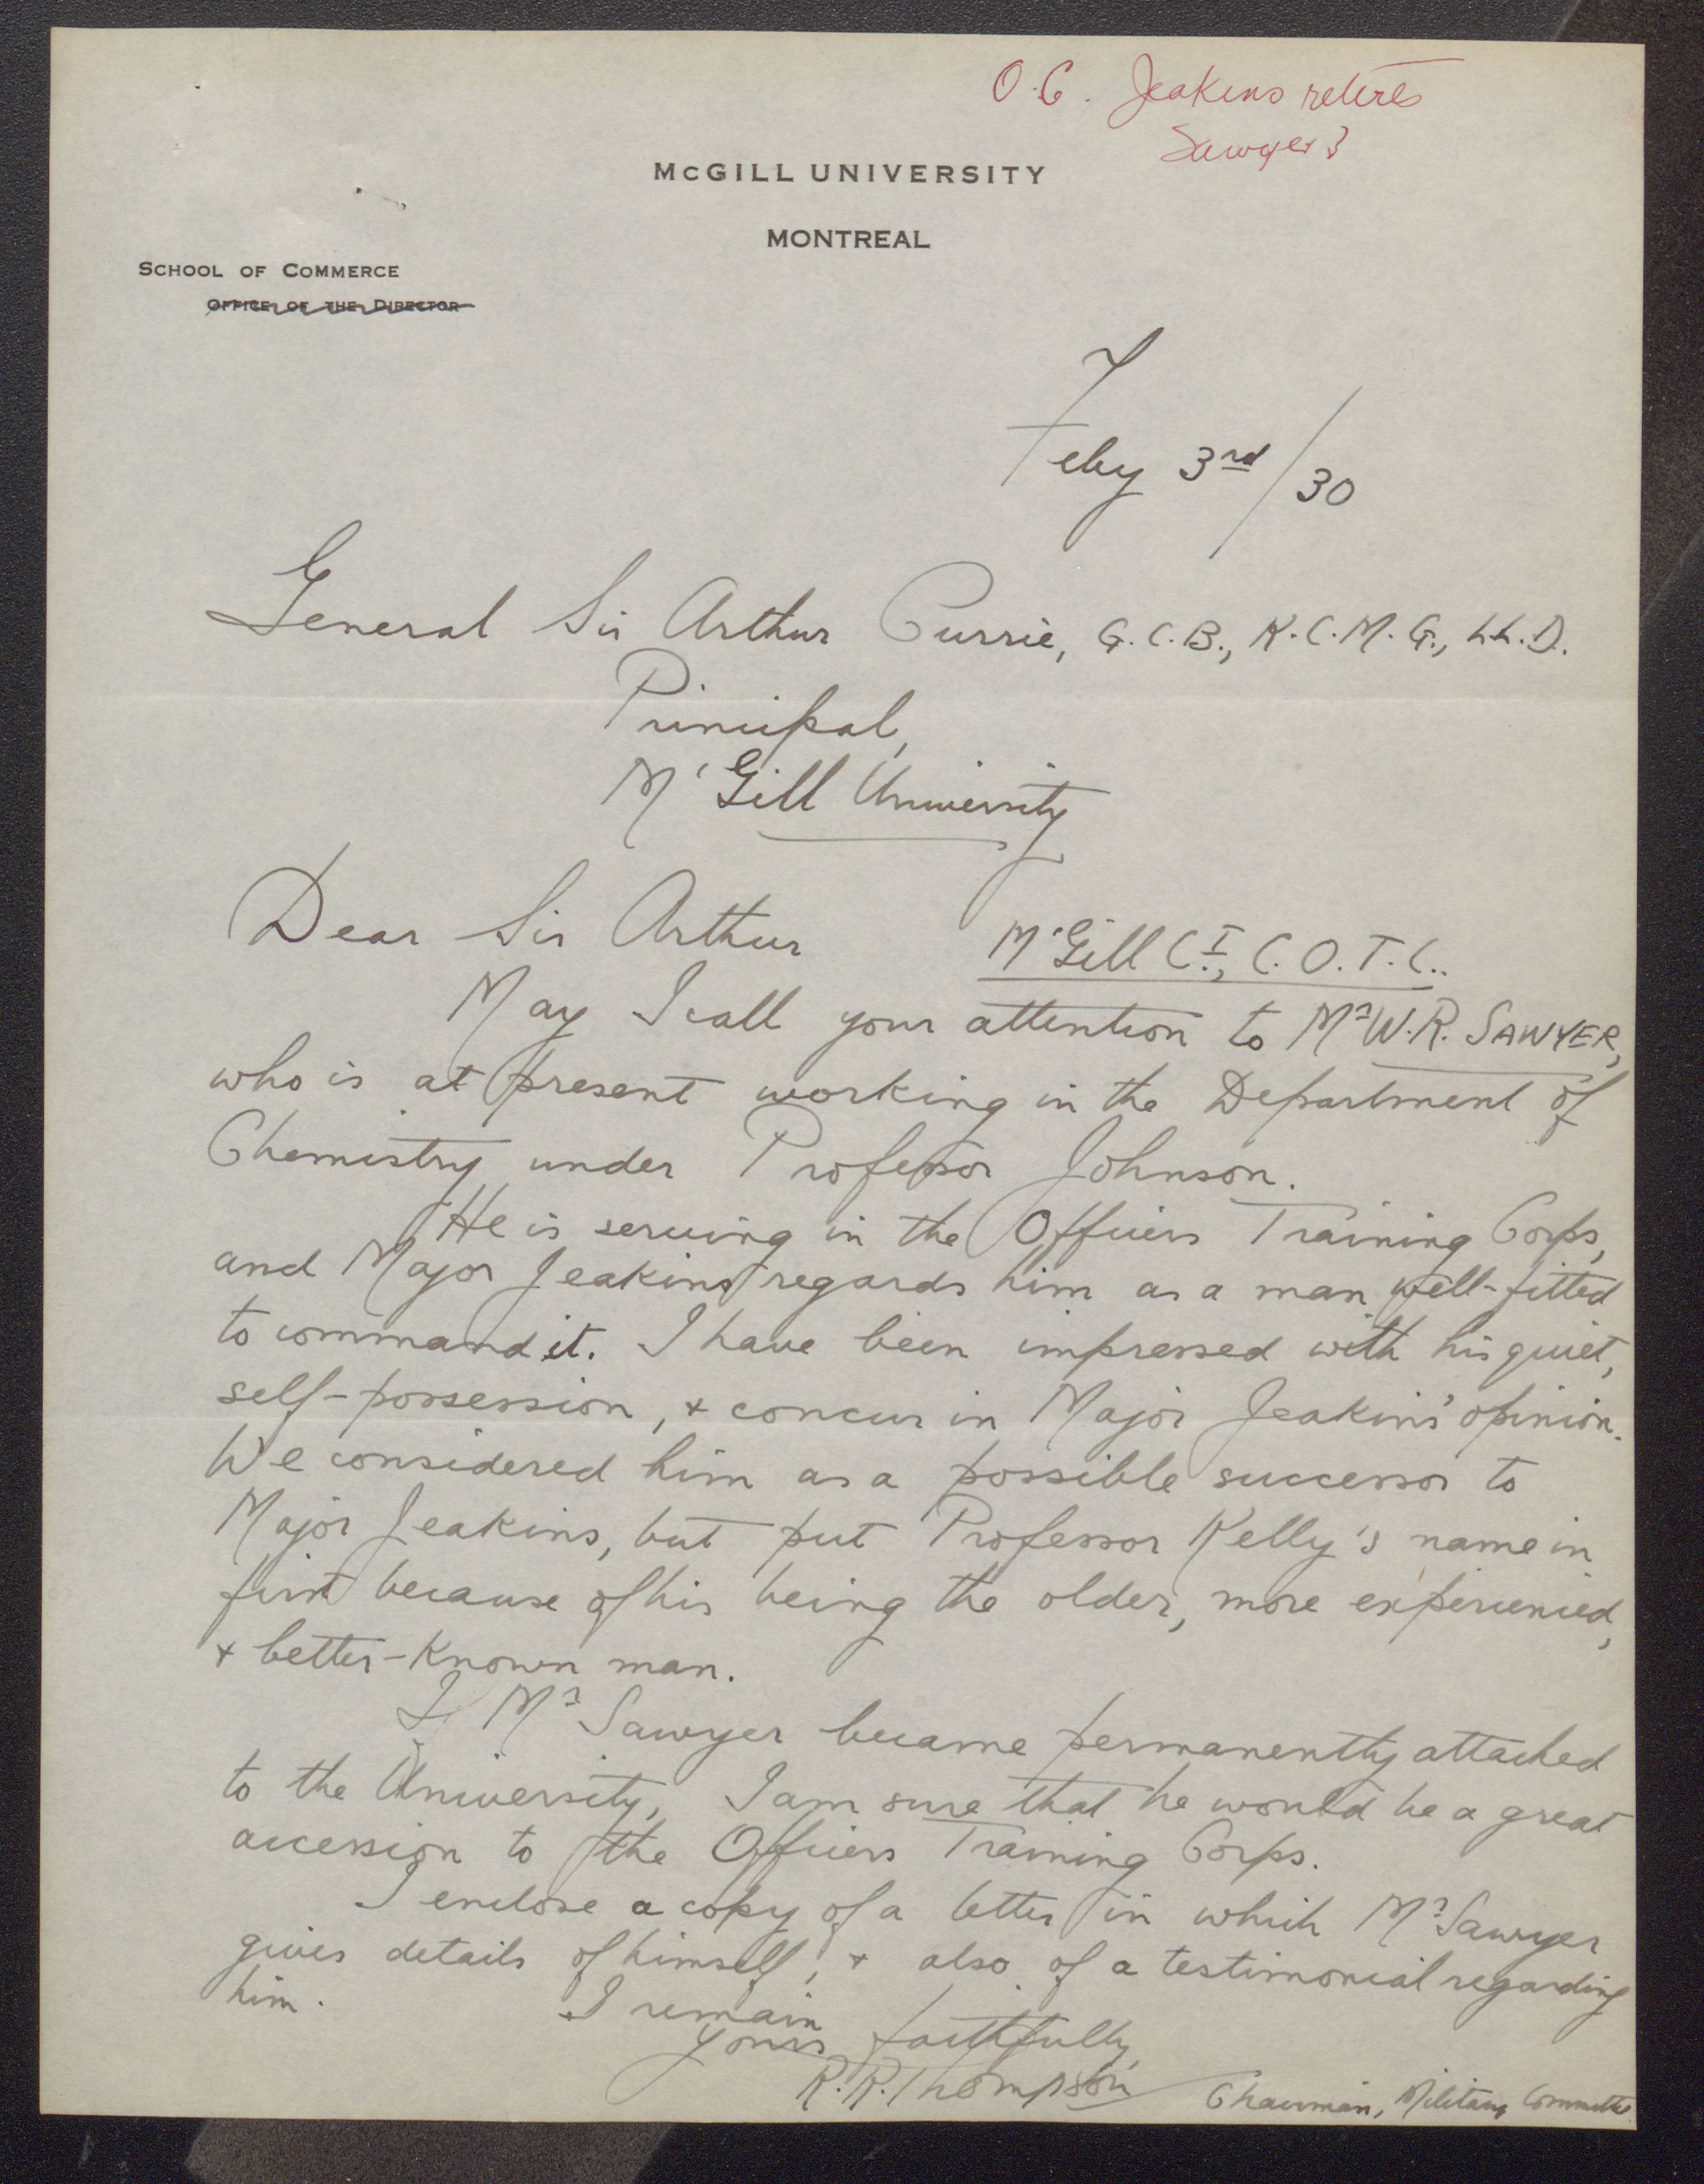 O.C. Jeakins retires
Sawyer?
McGILL UNIVERSITY
MONTREAL
SCHOOL OF COMMERCE
OFFICE OF THE DIRECTOR
Feby 3rd/30
General Sir Arthur Currie, G.C.B., K.C.M.G., LL.D.
Principal,
McGill University
Dear Sir Arthur
McGill Ct., C.O.T.C..
May I call your attention to Mr W.R. SAWYER,
who is at present working in the Department of
Chemistry under Professor Johnson.
He is serving in the Officers Training Corps,
and Major Jeakins regards him as a man well-fitted
to command it. I have been impressed with his quiet,
self-possession, & concur in Major Jeakins' opinion.
We considered him as a possible successor to
Major Jeakins, but put Professor Kelly's name in
first because of his being the older, more experienced,
& better-known man.
If Mr Sawyer became permanently attached
to the University, I am sure that he would be a great
accession to the Officers Training Corps.
I enclose a copy of a letter in which Mr Sawyer
gives details of himself, & also of a testimonial regarding
him.
I remain
Yours faithfully
R.R. Thompson
Chairman, Military Committee